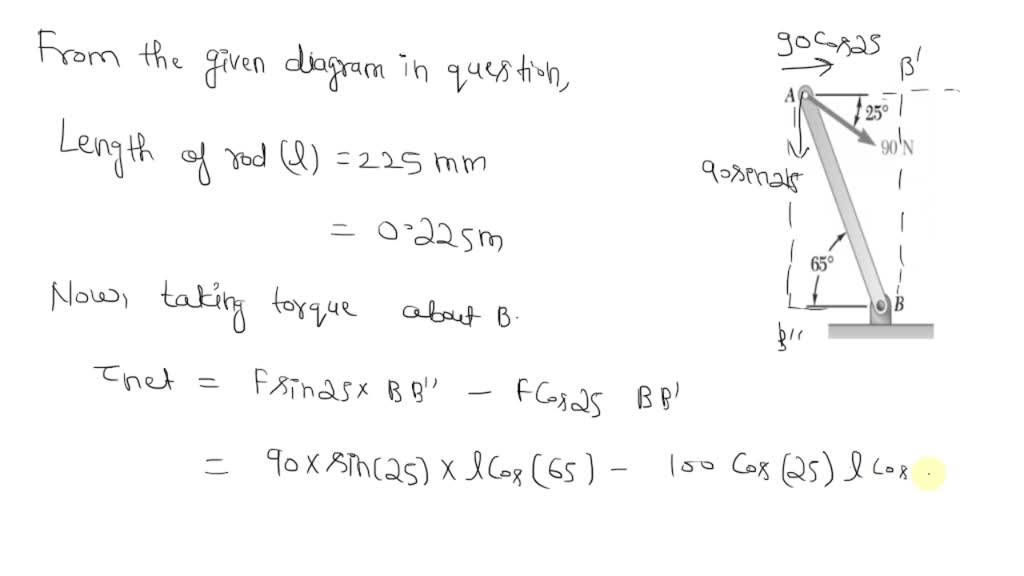 From the given diagram in question,
Length of rod (l) = 225 mm
= 0.225m
Now, taking torque about B.
τnet = Fsin25× BB'' − FCos25 BB'
= 90×sin(25)×lCos(65) − 100 Cos(25) l Cos
90Cos25
B'
A
25°
90 N
90sin25
65°
B
B''